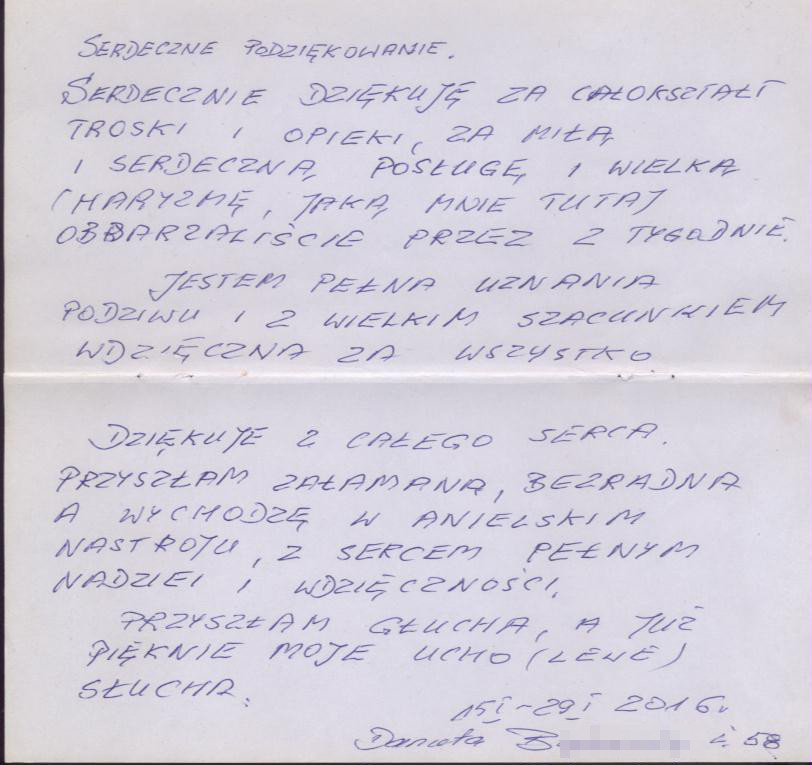 SERDECZNE PODZIĘKOWANIE.
SERDECZNIE DZIĘKUJĘ ZA CAŁOKSZTAŁT
TROSKI I OPIEKI, ZA MIŁĄ
I SERDECZNĄ POSŁUGĘ I WIELKĄ
CHARYZMĘ, JAKĄ MNIE TUTAJ
OBDARZALIŚCIE PRZEZ 2 TYGODNIE.
JESTEM PEŁNA UZNANIA
PODZIWU I Z WIELKIM SZACUNKIEM
WDZIĘCZNA ZA WSZYSTKO
DZIĘKUJĘ Z CAŁEGO SERCA.
PRZYSZŁAM ZAŁAMANA, BEZRADNA
A WYCHODZĘ W ANIELSKIM
NASTROJU, Z SERCEM PEŁNYM
NADZIEI I WDZIĘCZNOŚCI.
PRZYSZŁAM GŁUCHA, A JUŻ
PIĘKNIE MOJE UCHO (LEWE)
SŁUCHA.
15I-29I 2016r
Danuta l. 58